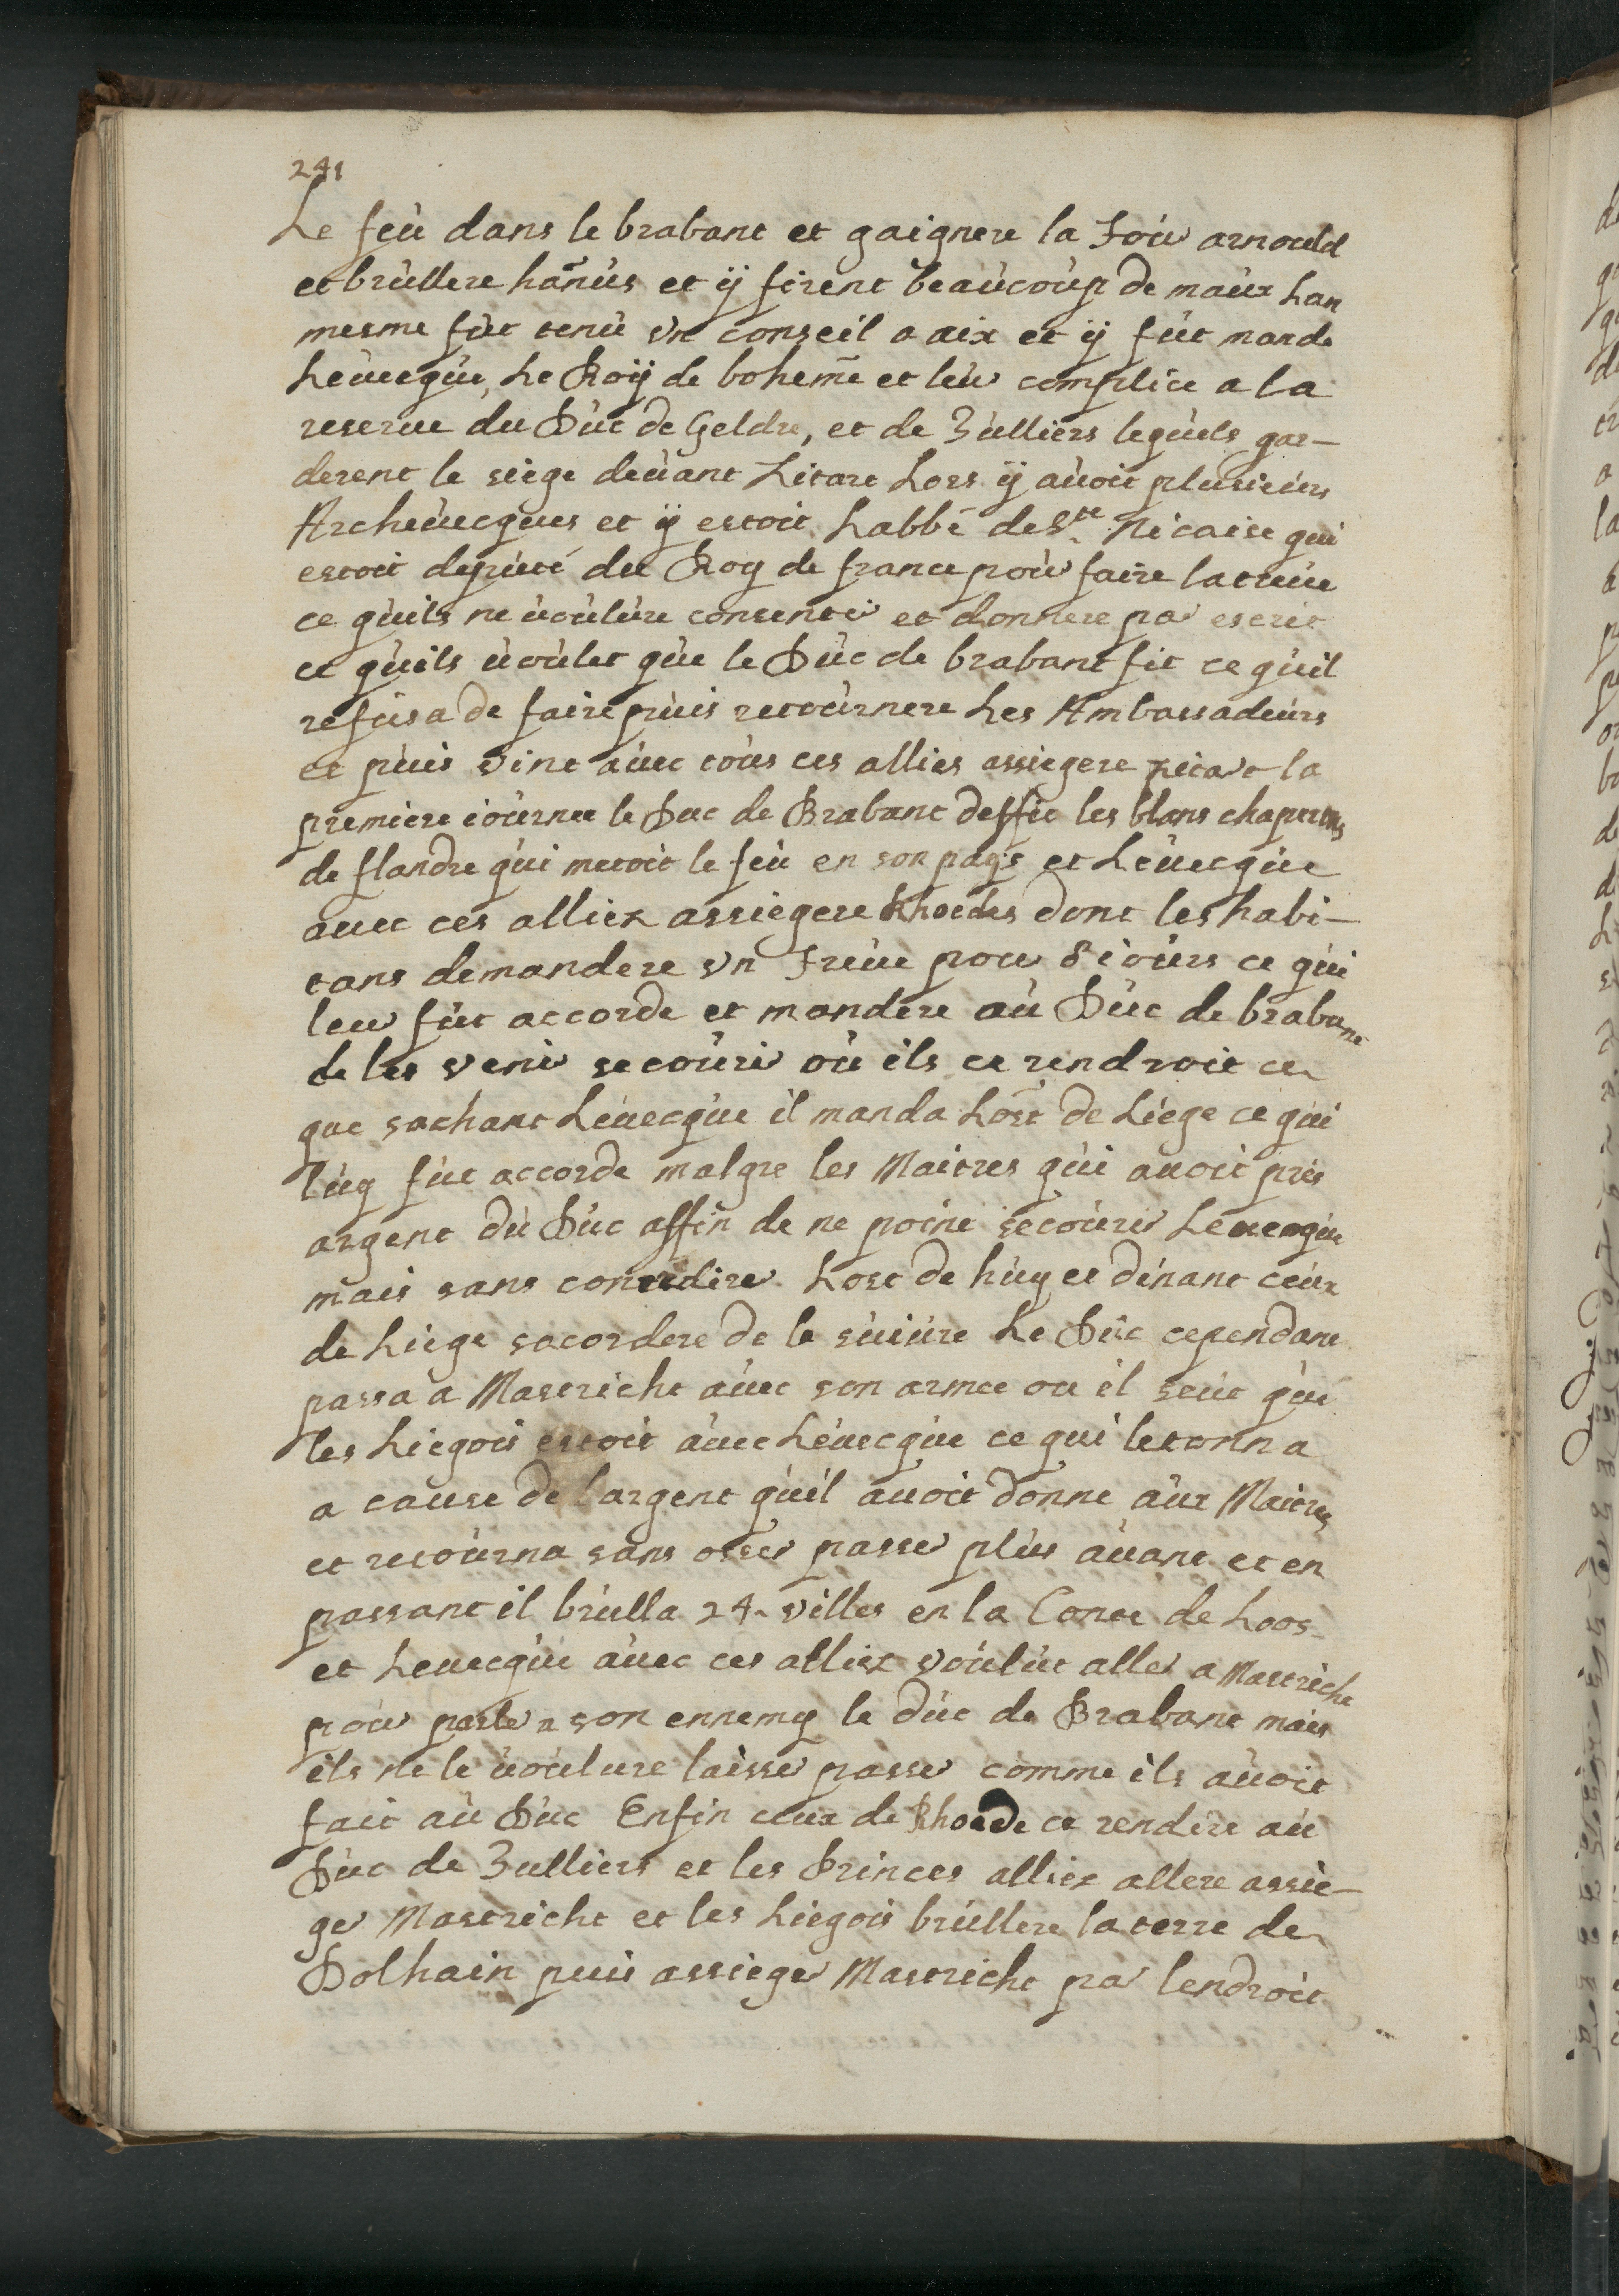 241
Le feù dans le brabant et gaignere la Toùr arnould
et brùllere hanùs et ÿ firent beaùcoùp de maùx Lan
mesme fùt tenù vn conseil a aix et ÿ fùt mande
Leùecqùe, Le Roÿ de boheme et leùr complice a la
reserue du Dùc de Geldre, et de Zùlliers leqùels gar-
derent le siege deùant Litart Lors ÿ aùoit plùsieùrs
Archeùecques et ÿ estoit Labbé de Ste. Nicaise qui
estoit depùté du Roy de france poùr faire la treùe
ce qùils ne ùoùlùre consentir et donnere par escrit
ce qùils ùoùlet qùe le Dùc de brabant fit ce qùil
refùsa de faire pùis retoùrnere Les Ambassadeùrs
et pùis vint aùec toùs ces allies assiegere Litart la
premiere ioùrnee le Duc de Brabant deffit les blans chaperons
de flandre qùi metoit le feù en son pays et Léùecqùe
auec ces alliez assiegere Rhoedes dont les habi-
tans demandere vn treùe pour 8 ioùrs ce qùi
leur fùt accorde et mandere aù Dùc de brabant
de les venir secoùrir où ils ce rendroit ce
que sachant Léuecqùe il manda Lost de Liege ce qùi
lùy fùt accorde malgre les Maitres qùi auoit pris
argent dù Dùc affin de ne point secoùrir Leuecqùe
mais sans contredire Lost de hùy et dinant ceùx
de Liege sacordere de le sùiùre Le Dùc cependant
passa a Mastricht aùec son armee ou il seùt qùe
les Liegois estoit aùec Léùecqùe ce qui letonna
a cause de largent qùil auoit donne aùx Maitres
et retoùrna sans osser passer plùs aùant et en
passant il brùlla 24 villes en la Conte de Loos
et Leuecqùe aùec ces alliez voùlùt aller a Mastricht
poùr parler a son ennemy le dùc de Brabant mais
ils ne le ùoùlure laisser passer comme ils aùoit
fait aù Dùc Enfin ceux de Rhoede ce rendire aù
Dùc de Zulliers et les Princes alliez allere assie-
ger Mastricht et les Liegois brùllere la terre de
Dolhain puis assieger Mastricht par lendroit